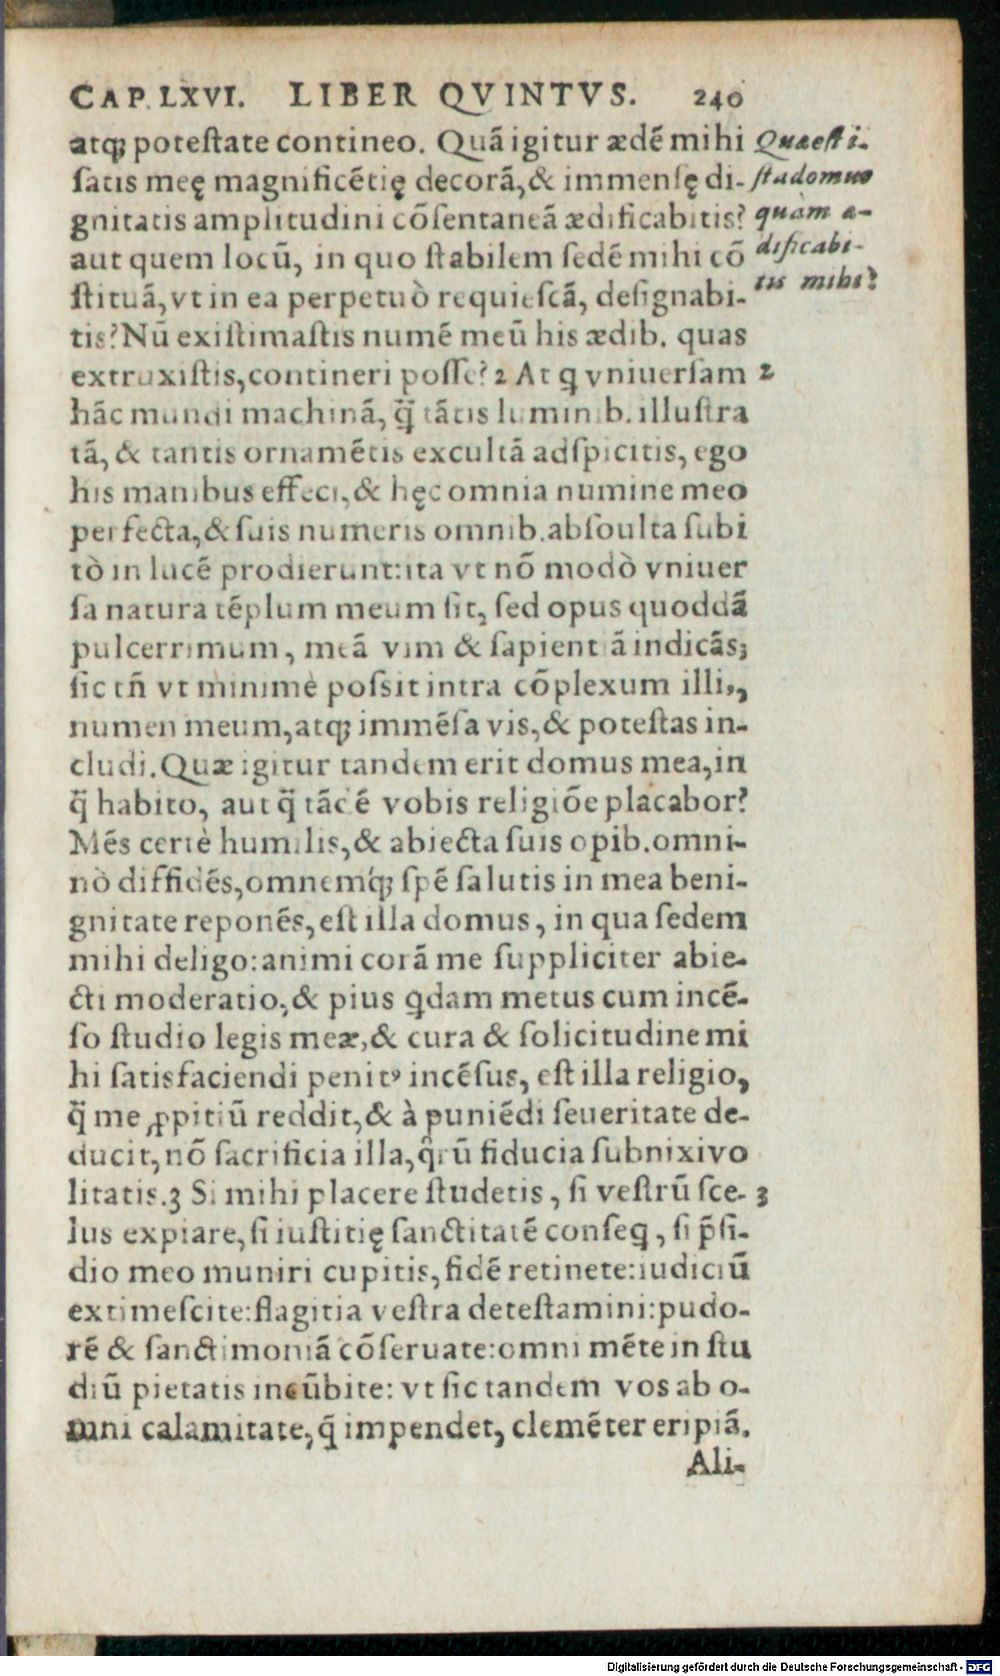 CAP. LXVI. LIBER QVINTVS. 240
atq; poteſtate contineo. Quã igitur ædẽ mihi
ſatis meę magnificẽtię decorã, & immenſę di-
gnitatis amplitudini cõſentaneã ædificabitis?
aut quem locũ, in quo ſtabilem ſedẽ mihi cõ
ſtituã, vt in ea perpetuò requieſcã, deſignabi-
tis? Nũ exiſtimaſtis numẽ meũ his ædib. quas
extruxiſtis, contineri poſſe? 2 At ꝗ vniuerſam
hãc mundi machinã, q̃ tãtis luminib. illuſtra
tã, & tantis ornamẽtis excultã adſpicitis, ego
his manibus effeci, & hęc omnia numine meo
perfecta, & ſuis numeris omnib. abſoulta ſubi
tò in lucẽ prodierunt: ita vt nõ modò vniuer
ſa natura tẽplum meum ſit, ſed opus quoddã
pulcerrimum, meã vim & ſapientiã indicãs;
ſic tñ vt minimè poſsit intra cõplexum illiꝰ,
numen meum, atq; immẽſa vis, & poteſtas in-
cludi. Quæ igitur tandem erit domus mea, in
q̃ habito, aut q̃ tãdẽ vobis religiõe placabor?
Mẽs certè humilis, & abiecta ſuis opib. omni-
nò diffidẽs, omnemq́; ſpẽ ſalutis in mea beni-
gnitate reponẽs, eſt illa domus, in qua ſedem
mihi deligo: animi corã me ſuppliciter abie-
cti moderatio, & pius ꝗdam metus cum incẽ-
ſo ſtudio legis meæ, & cura & ſolicitudine mi
hi ſatisfaciendi penitꝰ incẽſus, eſt illa religio,
q̃ me ꝓpitiũ reddit, & à puniẽdi ſeueritate de-
ducit, nõ ſacrificia illa, q̃rũ fiducia ſubnixi vo
litatis. 3 Si mihi placere ſtudetis, ſi veſtrũ ſce-
lus expiare, ſi iuſtitię ſanctitatẽ conſeꝗ, ſi p̃ſi-
dio meo muniri cupitis, fidẽ retinete: iudiciũ
extimeſcite: flagitia veſtra deteſtamini: pudo-
rẽ & ſanctimoniã cõſeruate: omni mẽte in ſtu
diũ pietatis incũbite: vt ſic tandem vos ab o-
mni calamitate, q̃ impendet, clemẽter eripiã.
Ali-
Quæ eſt i-
ſta domus
quàm æ-
dificabi-
tis mihi?
2
3
Digitalisierung gefördert durch die Deutsche Forschungsgemeinschaft - DFG